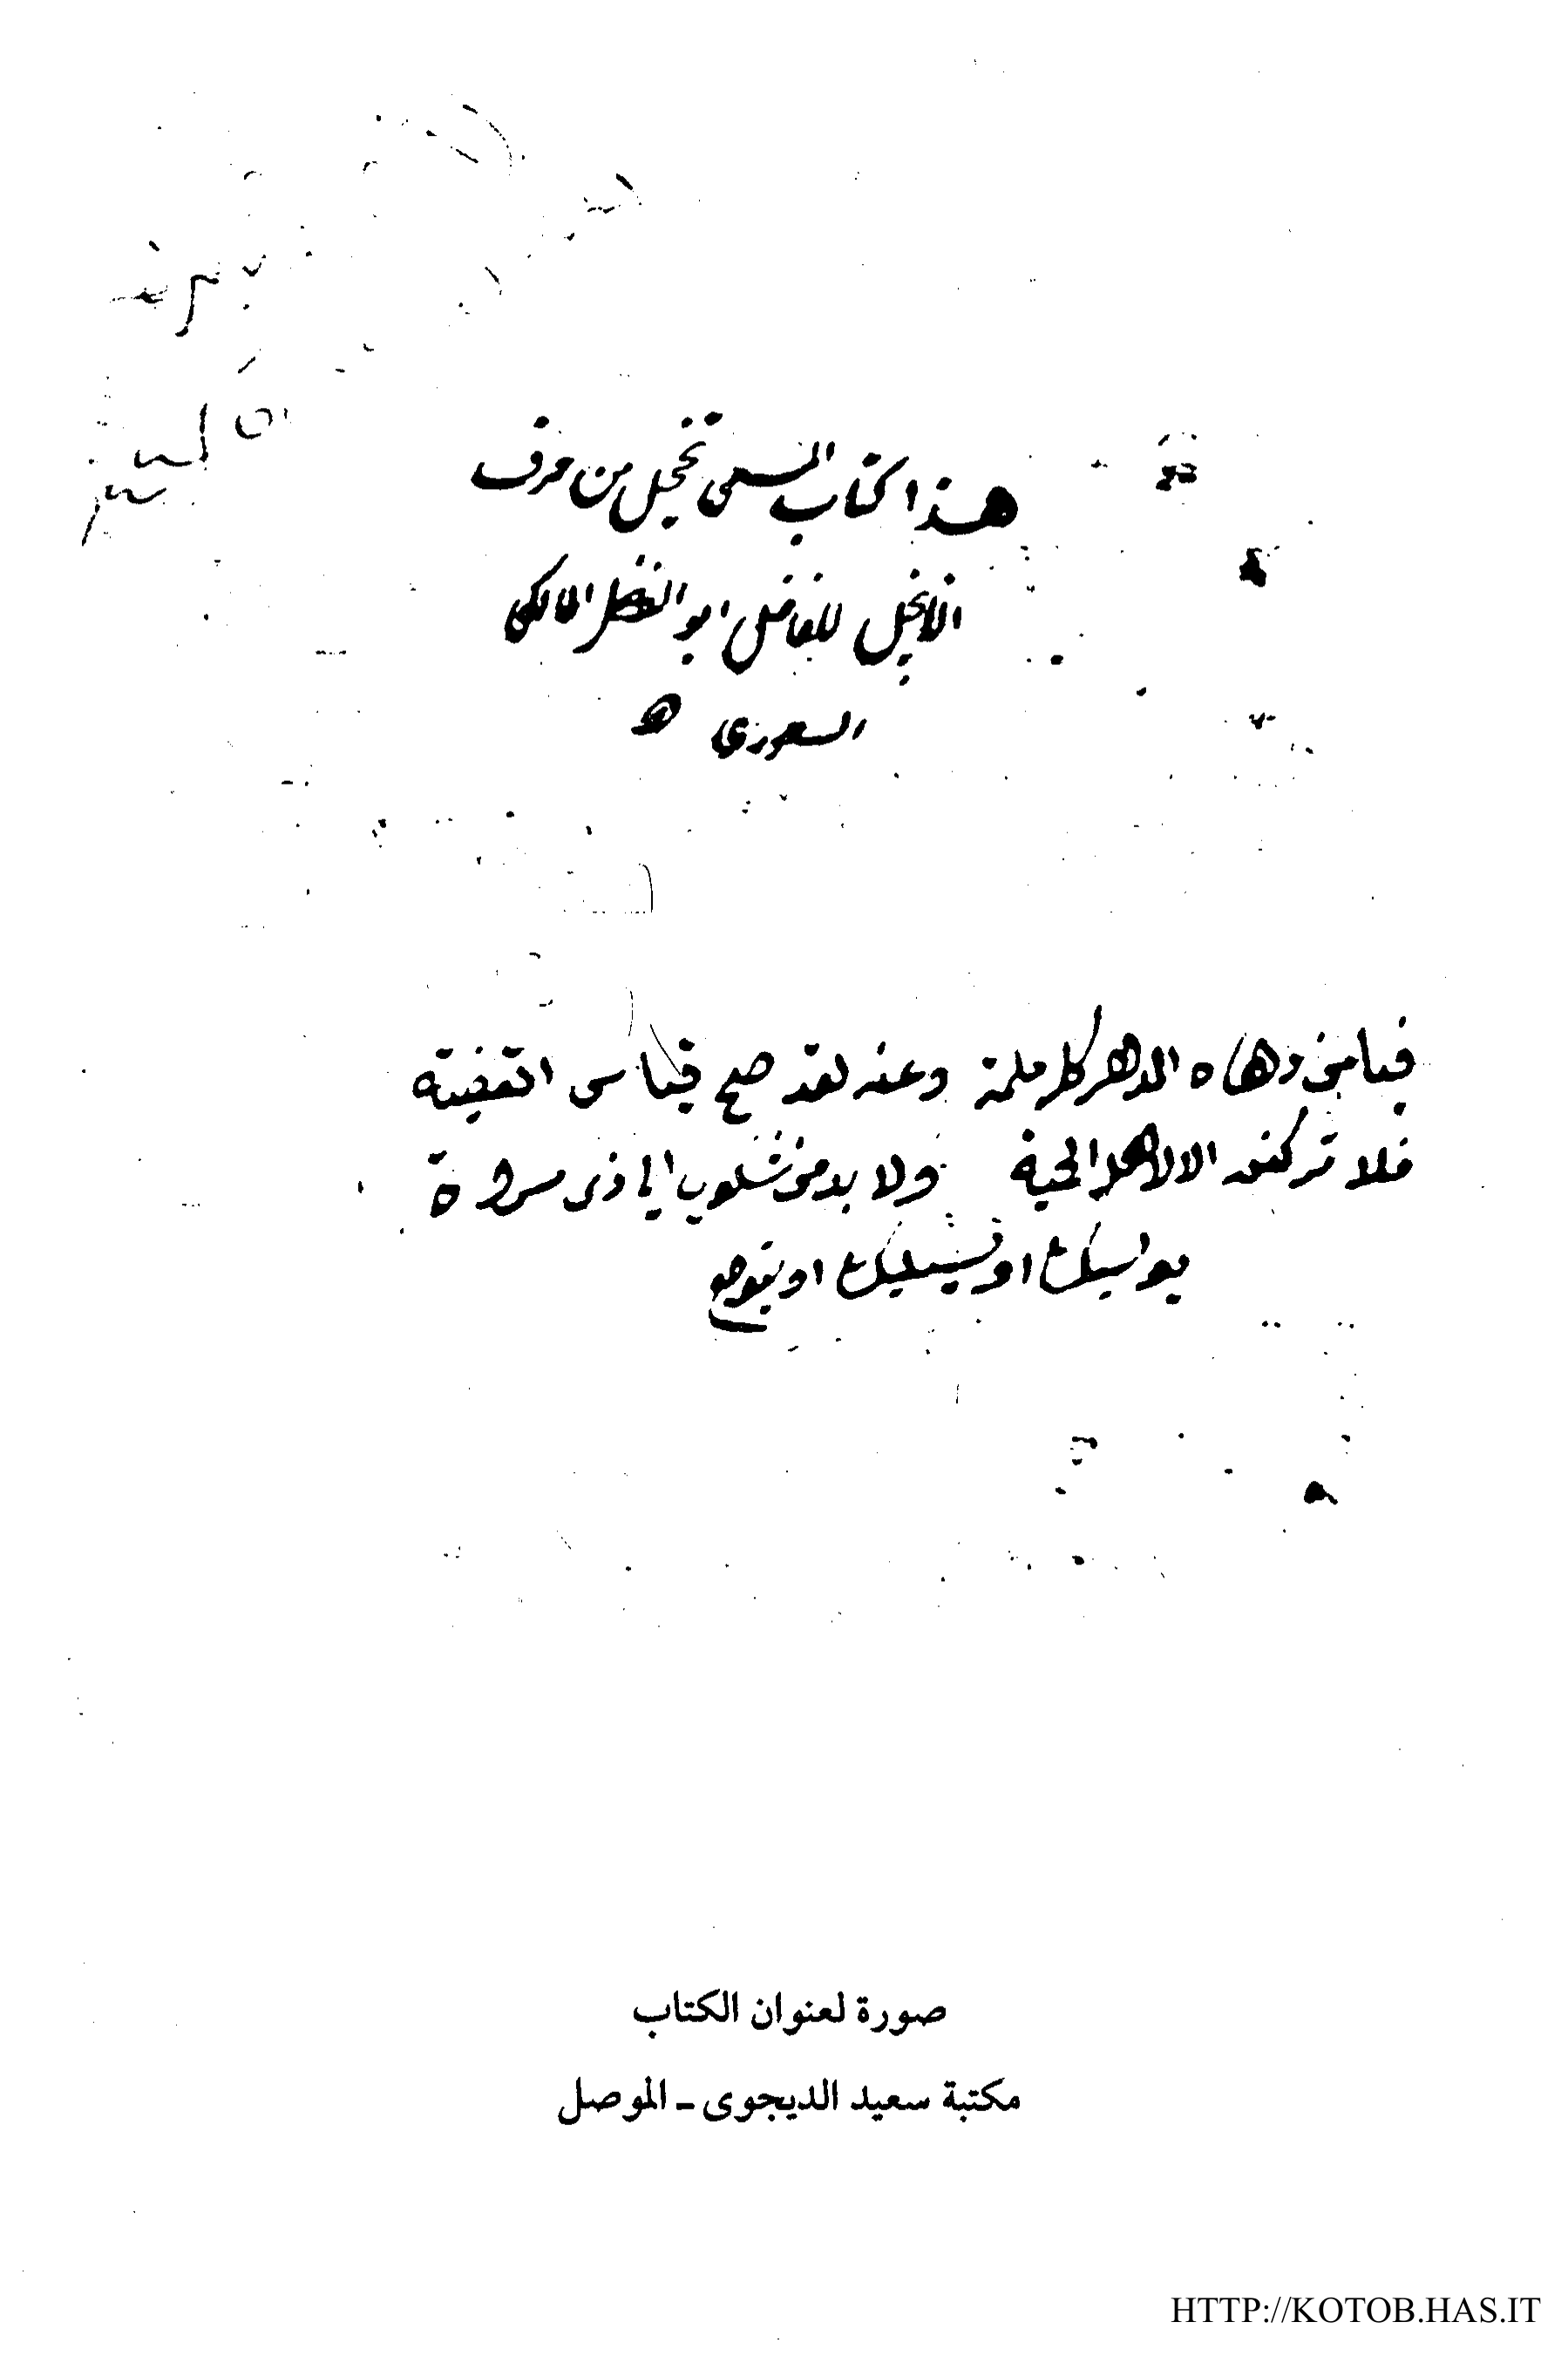 هذا كتاب المسمى تخجيل من حرف
الانجيل للفاضل ابو الفضل المالكي
السعودي ه
فيا من دهاه الدهر كل ملمة وعنه لقد صح قياس
فلا تركنن الا لاهل ولا بد من شكوى الى ذى مروة
يواسيك او يسليك او يتوجع
صورة لعنوان الكتاب
مكتبة سعيد الديجوى ـ الموصل
HTTP://KOTOB.HAS.IT